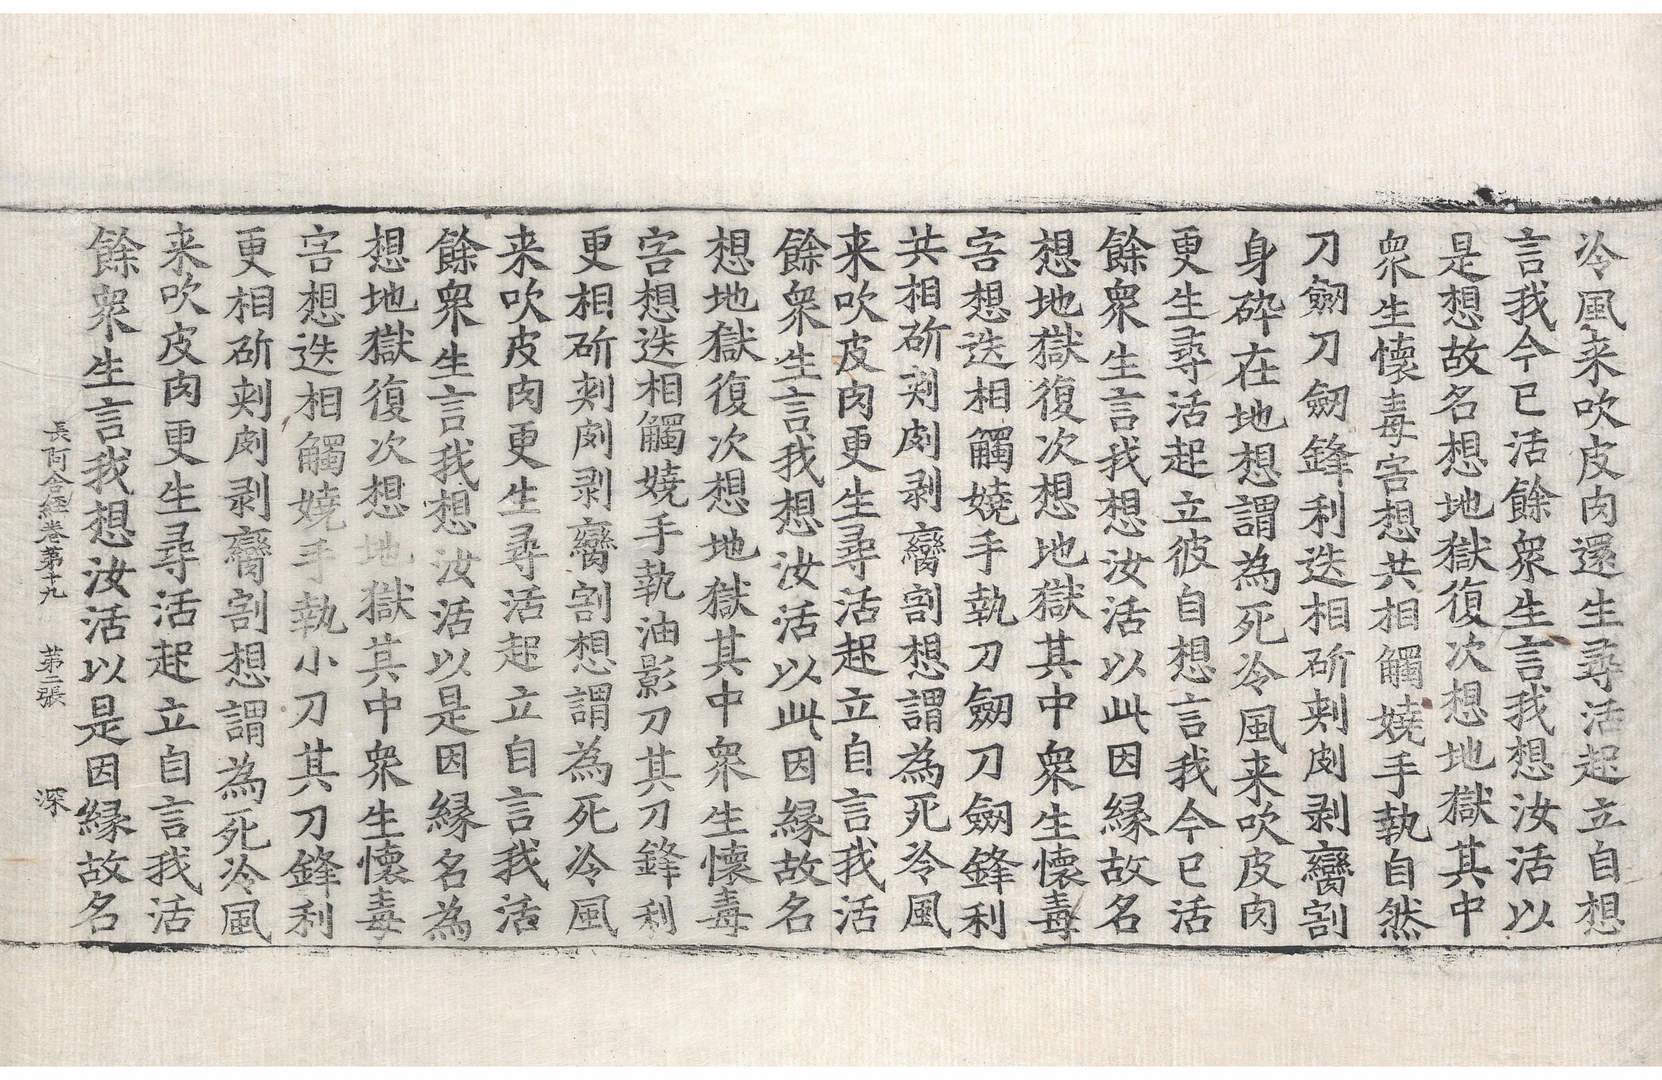 冷風来吹皮肉還生尋活起立自想
言我今已活餘衆生言我想汝活以
是想故名想地獄復次想地獄其中
衆生懷毒害想共相觸嬈手執自然
刀劒刀劒鋒利迭相斫刾剫剥臠割
身碎在地想謂為死冷風来吹皮肉
更生尋活起立彼自想言我今已活
餘衆生言我想汝活以此因縁故名
想地獄復次想地獄其中衆生懷毒
害想迭相觸嬈手執刀劒刀劒鋒利
共相斫刾剫剥臠割想謂為死冷風
来吹皮肉更生尋活起立自言我活
餘衆生言我想汝活以此因縁故名
想地獄復次想地獄其中衆生懷毒
害想迭相觸嬈手執油影刀其刀鋒利
更相斫刾剫剥臠割想謂為死冷風
来吹皮肉更生尋活起立自言我活
餘衆生言我想汝活以是因縁名為
想地獄復次想地獄其中衆生懷毒
害想迭相觸嬈手執小刀其刀鋒利
更相斫刾剫剥臠割想謂為死冷風
来吹皮肉更生尋活起立自言我活
餘衆生言我想汝活以是因縁故名
長阿含経卷第十九 第二張 深